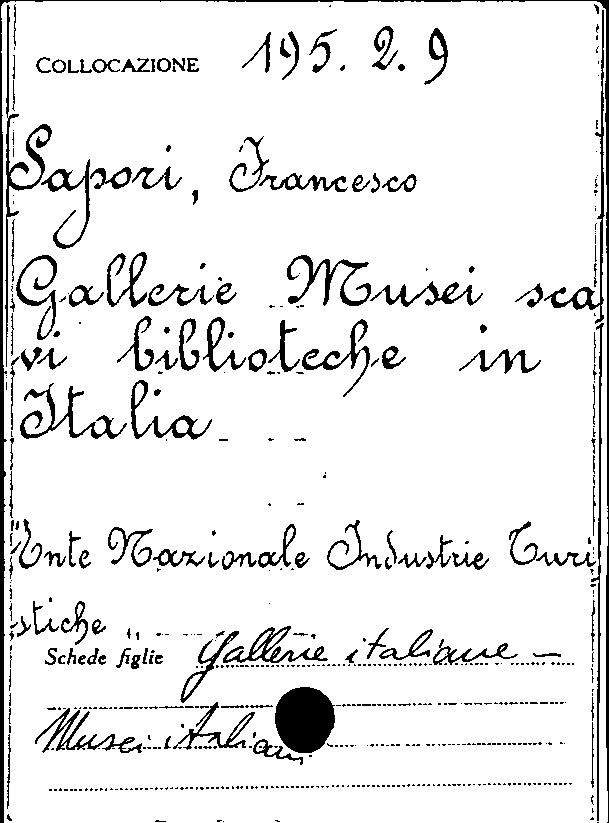 COLLOCAZIONE 195. 2. 9
Sapori, Francesco
Gallerie Musei sca
vi biblioteche in
Italia
"Ente Nazionale Industrie Turi
stiche "
Schede figlie Gallerie italiane -
Musei italiani